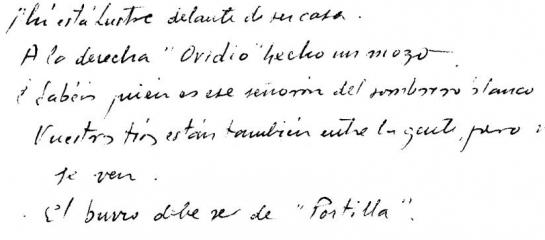 Ahí está Lustre delante de su casa.
A la derecha "Ovidio" hecho un mozo
¿Sabéis quién es ese señorín del sombrero blanco
Vuestros tíos están también entre la gente, pero
se ven.
El burro debe ser de "Portilla".